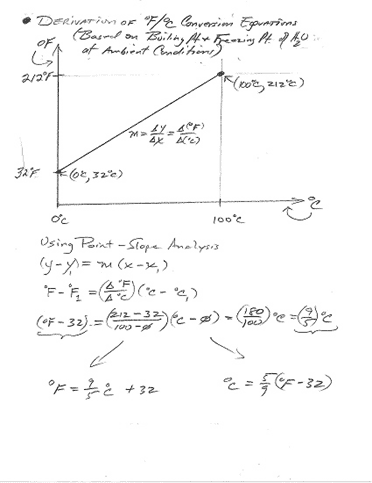 • DERIVATION OF °F/°C Conversion Equations
(Based on Boiling Pt & Freezing Pt. of H₂O
at Ambient Conditions)
°F
212°F
(100°C, 212°C)
m = ΔY/ΔX = Δ(°F)/Δ(°C)
32°F
(0°C, 32°C)
0°C
100°C
°C
Using Point-Slope Analysis
(y-y₁) = m (x-x₁)
°F-°F₁ = (Δ°F/Δ°C)(°C-°C₁)
(°F-32) = (212-32/100-0)(°C-0) = (180/100)°C = (9/5)°C
°F = 9/5 °C + 32
°C = 5/9 (°F-32)